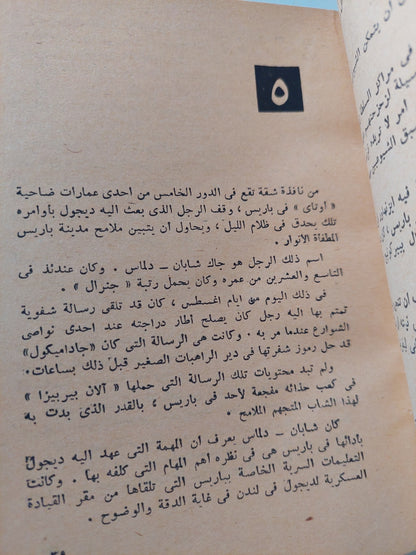 ٥
من نافذة شقة تقع فى الدور الخامس من احدى عمارات ضاحية
« اوتاى » فى باريس ، وقف الرجل الذى بعث اليه ديجول بأوامره
تلك يحدق فى ظلام الليل ، ويحاول أن يتبين ملامح مدينة باريس
المطفأة الانوار .
اسم ذلك الرجل هو جاك شابان - دلماس . وكان عندئذ فى
التاسع والعشرين من عمره وكان يحمل رتبة « جنرال » .
فى ذلك اليوم من ايام اغسطس ، كان قد تلقى رسالة شفوية
تمتم بها اليه رجل كان يصلح أطار دراجته عند احدى نواصى
الشوارع عندما مر به . وكانت هى الرسالة التى كان «جاداميكول»
قد حل رموز شفرتها فى دير الراهبات الصغير قبل ذلك بساعات .
ولم تبد محتويات تلك الرسالة التى حملها « آلان بيربيزا »
فى كعب حذائه مفجعة لأحد فى باريس ، بالقدر الذى بدت به
لهذا الشاب المتجهم الملامح .
كان شابان - دلماس يعرف ان المهمة التى عهد اليه ديجول
بادائها فى باريس هى فى نظره اهم المهام التى كلفه بها . وكانت
التعليمات السرية الخاصة بباريس التى تلقاها من مقر القيادة
العسكرية لديجول فى لندن فى غاية الدقة والوضوح .
٣٥